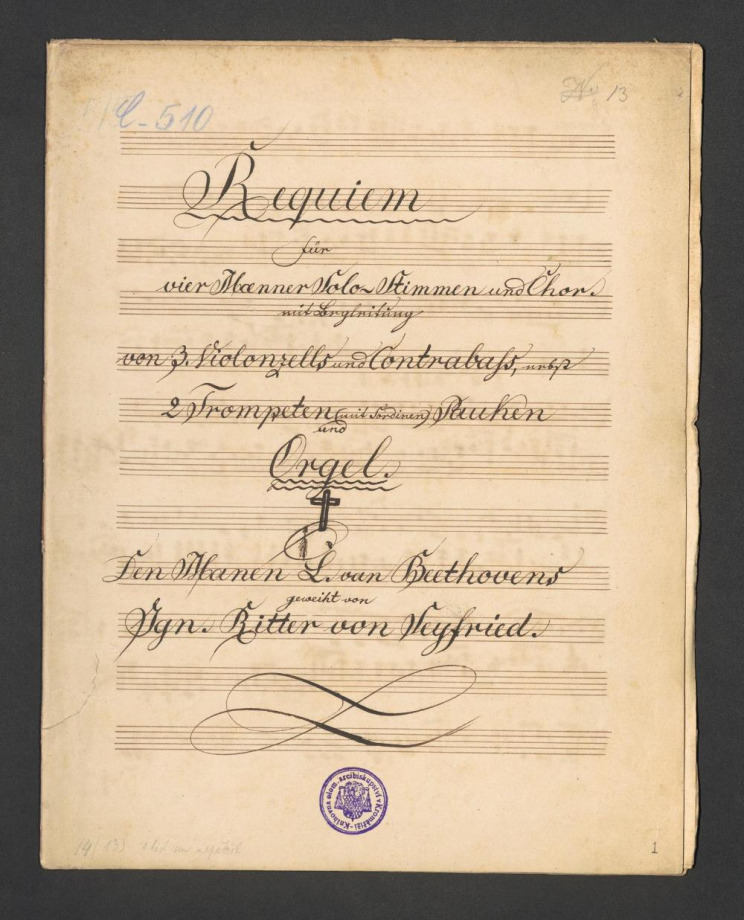 C-510
No 13
Requiem
für
vier Mænner Solo-Stimmen und Chor.
mit Begleitung
von 3. Violonzells und Contrabaſs, nebst
2 Trompeten (mit Sordinen) Pauken
und
Orgel.
Den Manen L. van Beethovens
geweiht von
Ign. Ritter von Seyfried.
Knihovna olom. arcibiskupství v Kroměříži
1
19/13)